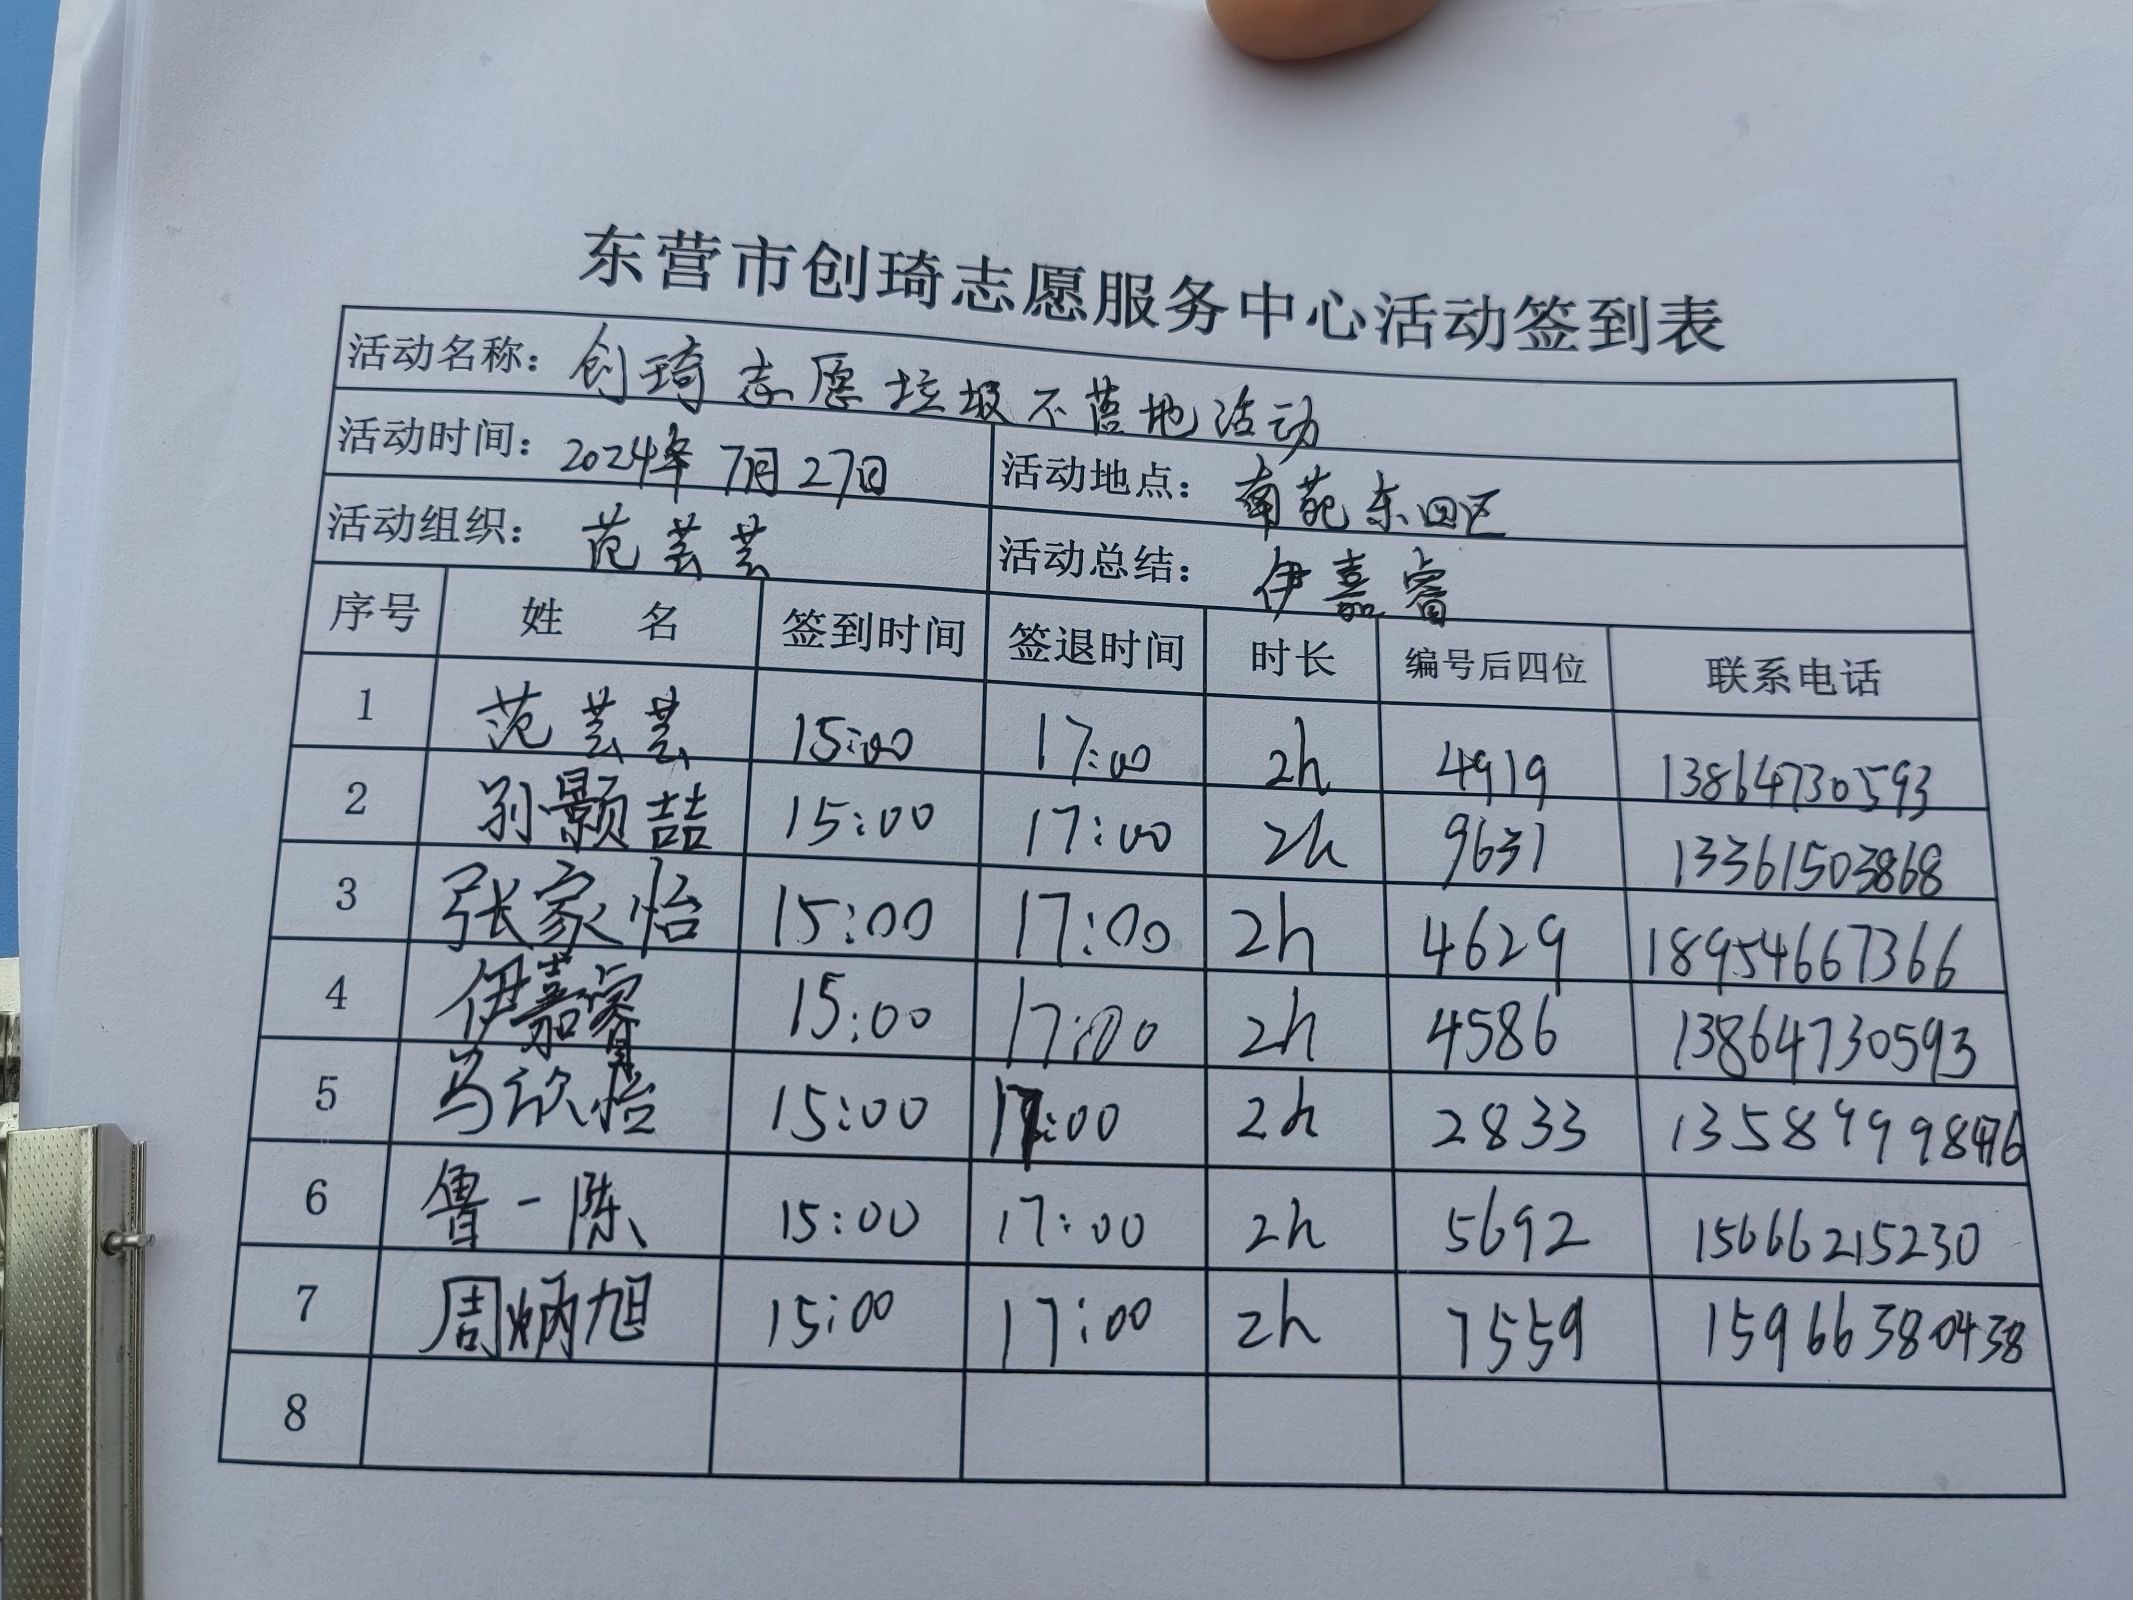 东营市创琦志愿服务中心活动签到表
活动名称：创琦志愿垃圾不落地活动
活动时间：2024年7月27日 活动地点：南苑东四区
活动组织：范芸芸 活动总结：伊嘉睿
序号 姓 名 签到时间 签退时间 时长 编号后四位 联系电话
1 范芸芸 15:00 17:00 2h 4919 13864730593
2 孙颢喆 15:00 17:00 2h 9631 13361503868
3 张家怡 15:00 17:00 2h 4629 18954667366
4 伊嘉睿 15:00 17:00 2h 4586 13864730593
5 马欣怡 15:00 17:00 2h 2833
6 鲁一陈 15:00 17:00 2h 5692 15666215230
7 周炳旭 15:00 17:00 2h 7559 15966380438
8